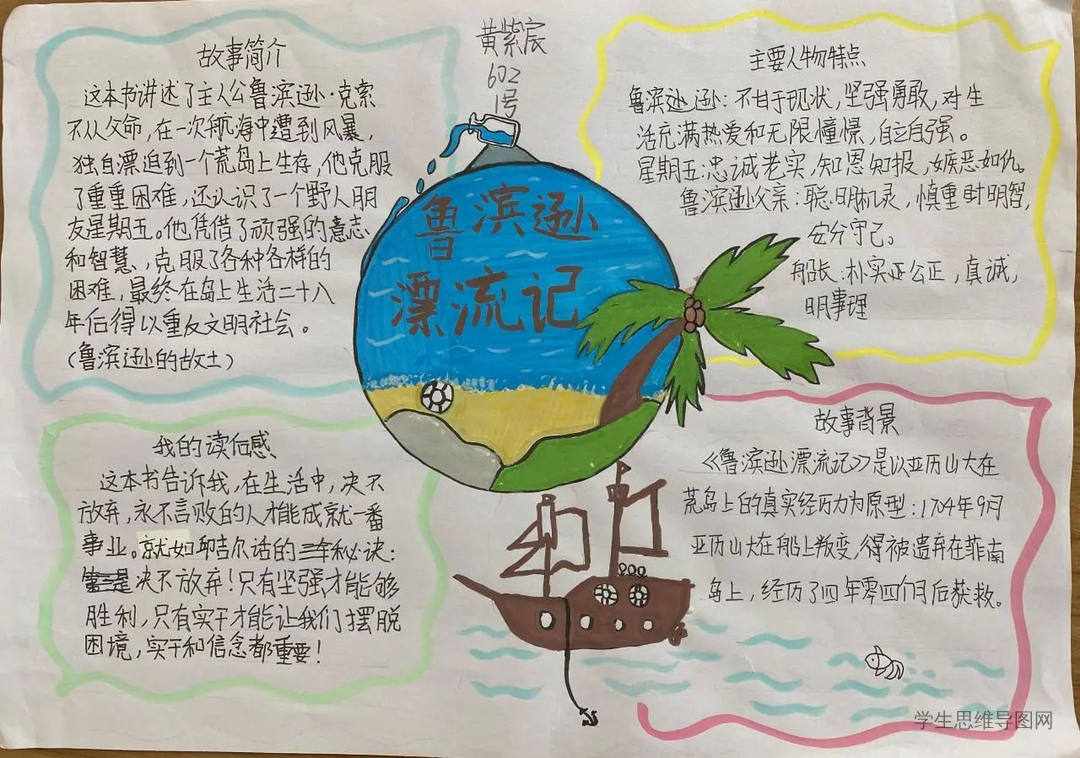 黄紫宸
602
1号
鲁滨逊
漂流记
故事简介
这本书讲述了主人公鲁滨逊·克索
不从父命,在一次航海中遭到风暴,
独自漂追到一个荒岛上生存,他克服
了重重困难,还认识了一个野人朋
友星期五。他凭借了顽强的意志
和智慧,克服了各种各样的
困难,最终在岛上生活二十八
年后得以重反文明社会。
(鲁滨逊的故土)
主要人物特点
鲁滨逊:不甘于现状,坚强勇敢,对生
活充满热爱和无限憧憬,自立自强。
星期五:忠诚老实,知恩知报,嫉恶如仇。
鲁滨逊父亲:聪明机灵,慎重明智,
安分守己。
船长:朴实正公正,真诚,
明事理
我的读后感
这本书告诉我,在生活中,决不
放弃,永不言败的人才能成就一番
事业。就如丘吉尔话的三年秘诀:
决不放弃!只有坚强才能够
胜利,只有实干才能让我们摆脱
困境,实干和信念都重要!
故事背景
《鲁滨逊漂流记》是以亚历山大在
荒岛上的真实经历为原型:1704年9月
亚历山大在船上叛变,得被遗弃在菲南
岛上,经历了四年零四个月后获救。
学生思维导图网